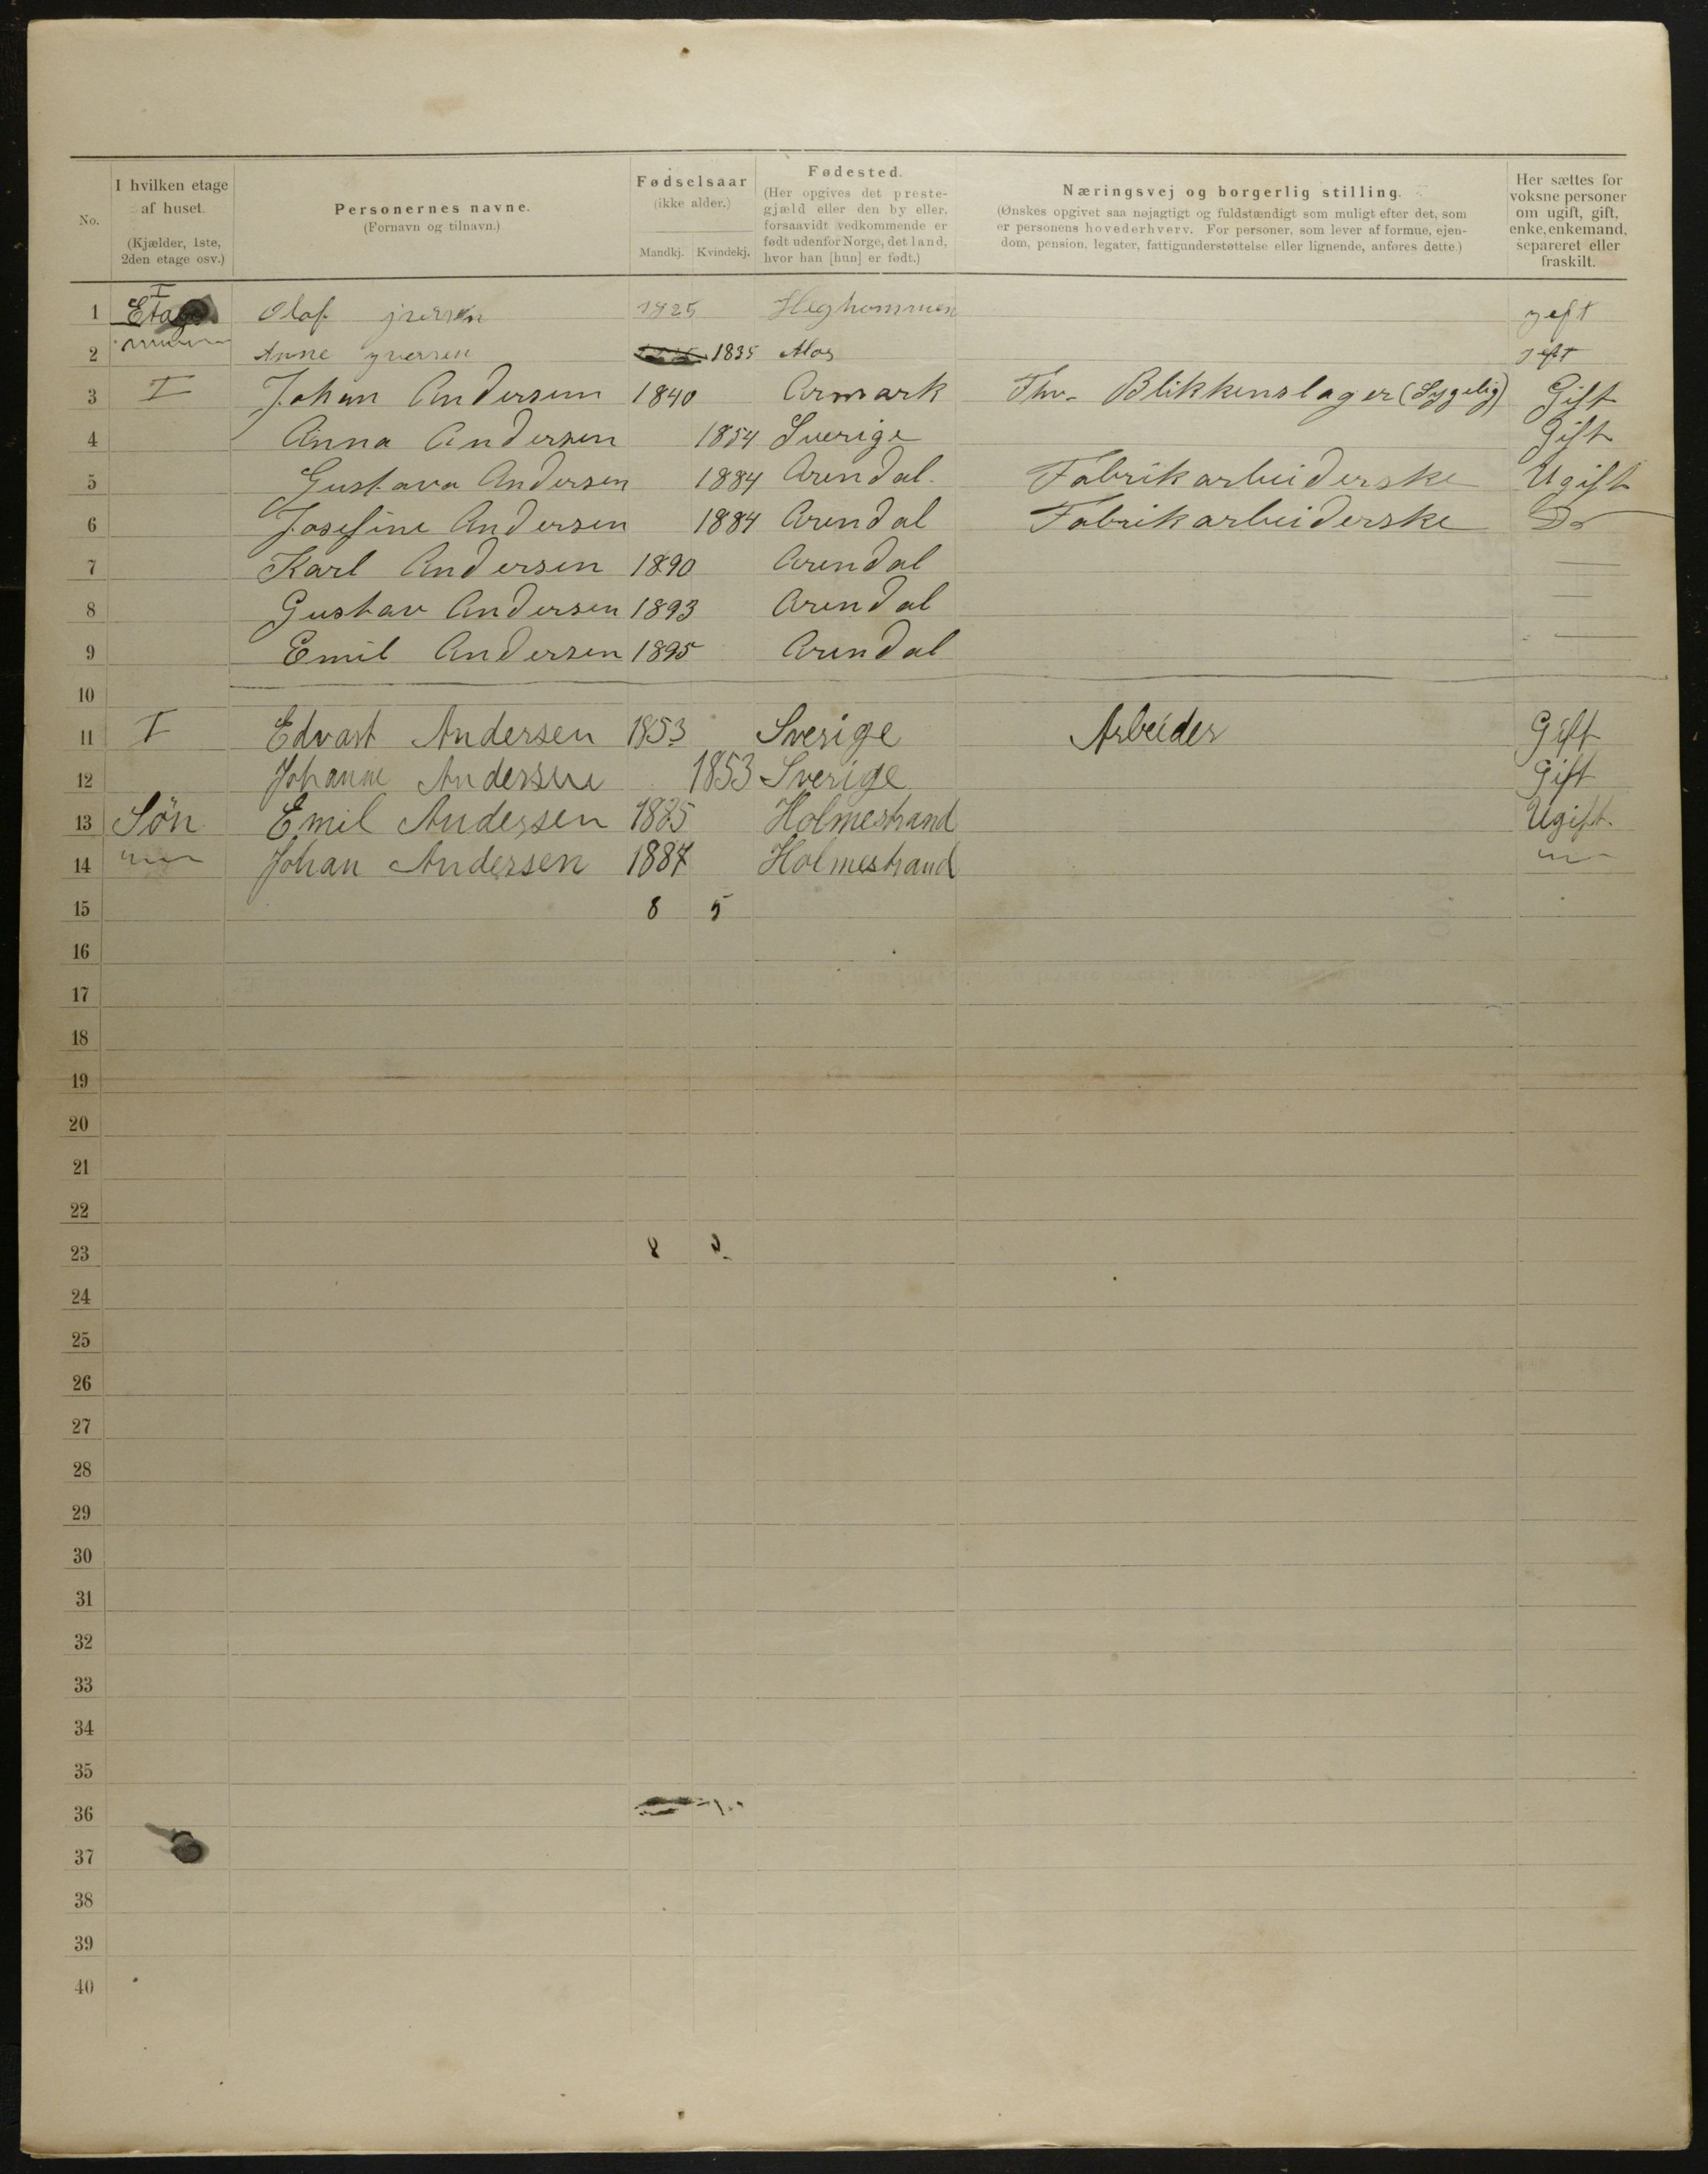 No.
I hvilken etage af huset.
(Kjælder, 1ste, 2den etage osv.)
Personernes navne.
(Fornavn og tilnavn.)
Fødselsaar
(ikke alder.)
Mandkj. Kvindekj.
Fødested.
(Her opgives det preste-
gjæld eller den by eller,
forsaavidt vedkommende er
født udenfor Norge, det land,
hvor han [hun] er født.)
Næringsvej og borgerlig stilling.
(Ønskes opgivet saa nøjagtigt og fuldstændigt som muligt efter det, som
er personens hovederhverv. For personer, som lever af formue, ejen-
dom, pension, legater, fattigunderstøttelse eller lignende, anføres dette.)
Her sættes for
voksne personer
om ugift, gift,
enke, enkemand,
separeret eller
fraskilt.
1 I Etage Olaf 1825 geft
2 Anne 1835 Mos geft
3 I Johan Andersen 1840 Armark Fhv. Blikkenslager (Sygelig) Gift
4 Anna Andersen 1854 Sverige Gift
5 Gustava Andersen 1884 Arendal. Fabrikarbeiderske Ugift
6 Josefine Andersen 1884 Arendal Fabrikarbeiderske Do
7 Karl Andersen 1890 Arendal
8 Gustav Andersen 1893 Arendal
9 Emil Andersen 1895 Arendal
10
11 I Edvart Andersen 1853 Sverige Arbeider Gift
12 Johanne Andersen 1853 Sverige Gift
13 Søn Emil Andersen 1885 Holmestrand Ugift.
14 Johan Andersen 1887 Holmestrand
15 8 5
16
17
18
19
20
21
22
23 8
24
25
26
27
28
29
30
31
32
33
34
35
36
37
38
39
40